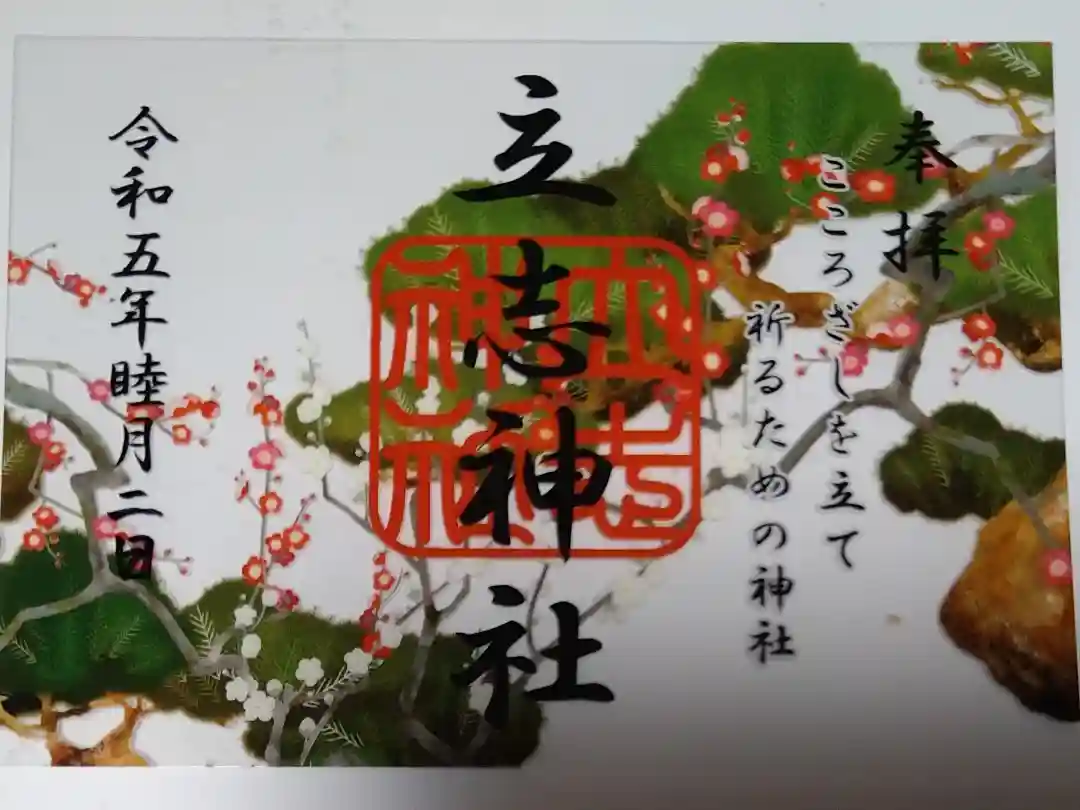 奉拝
こころざしを立て
祈るための神社
立志神社
令和五年睦月二日